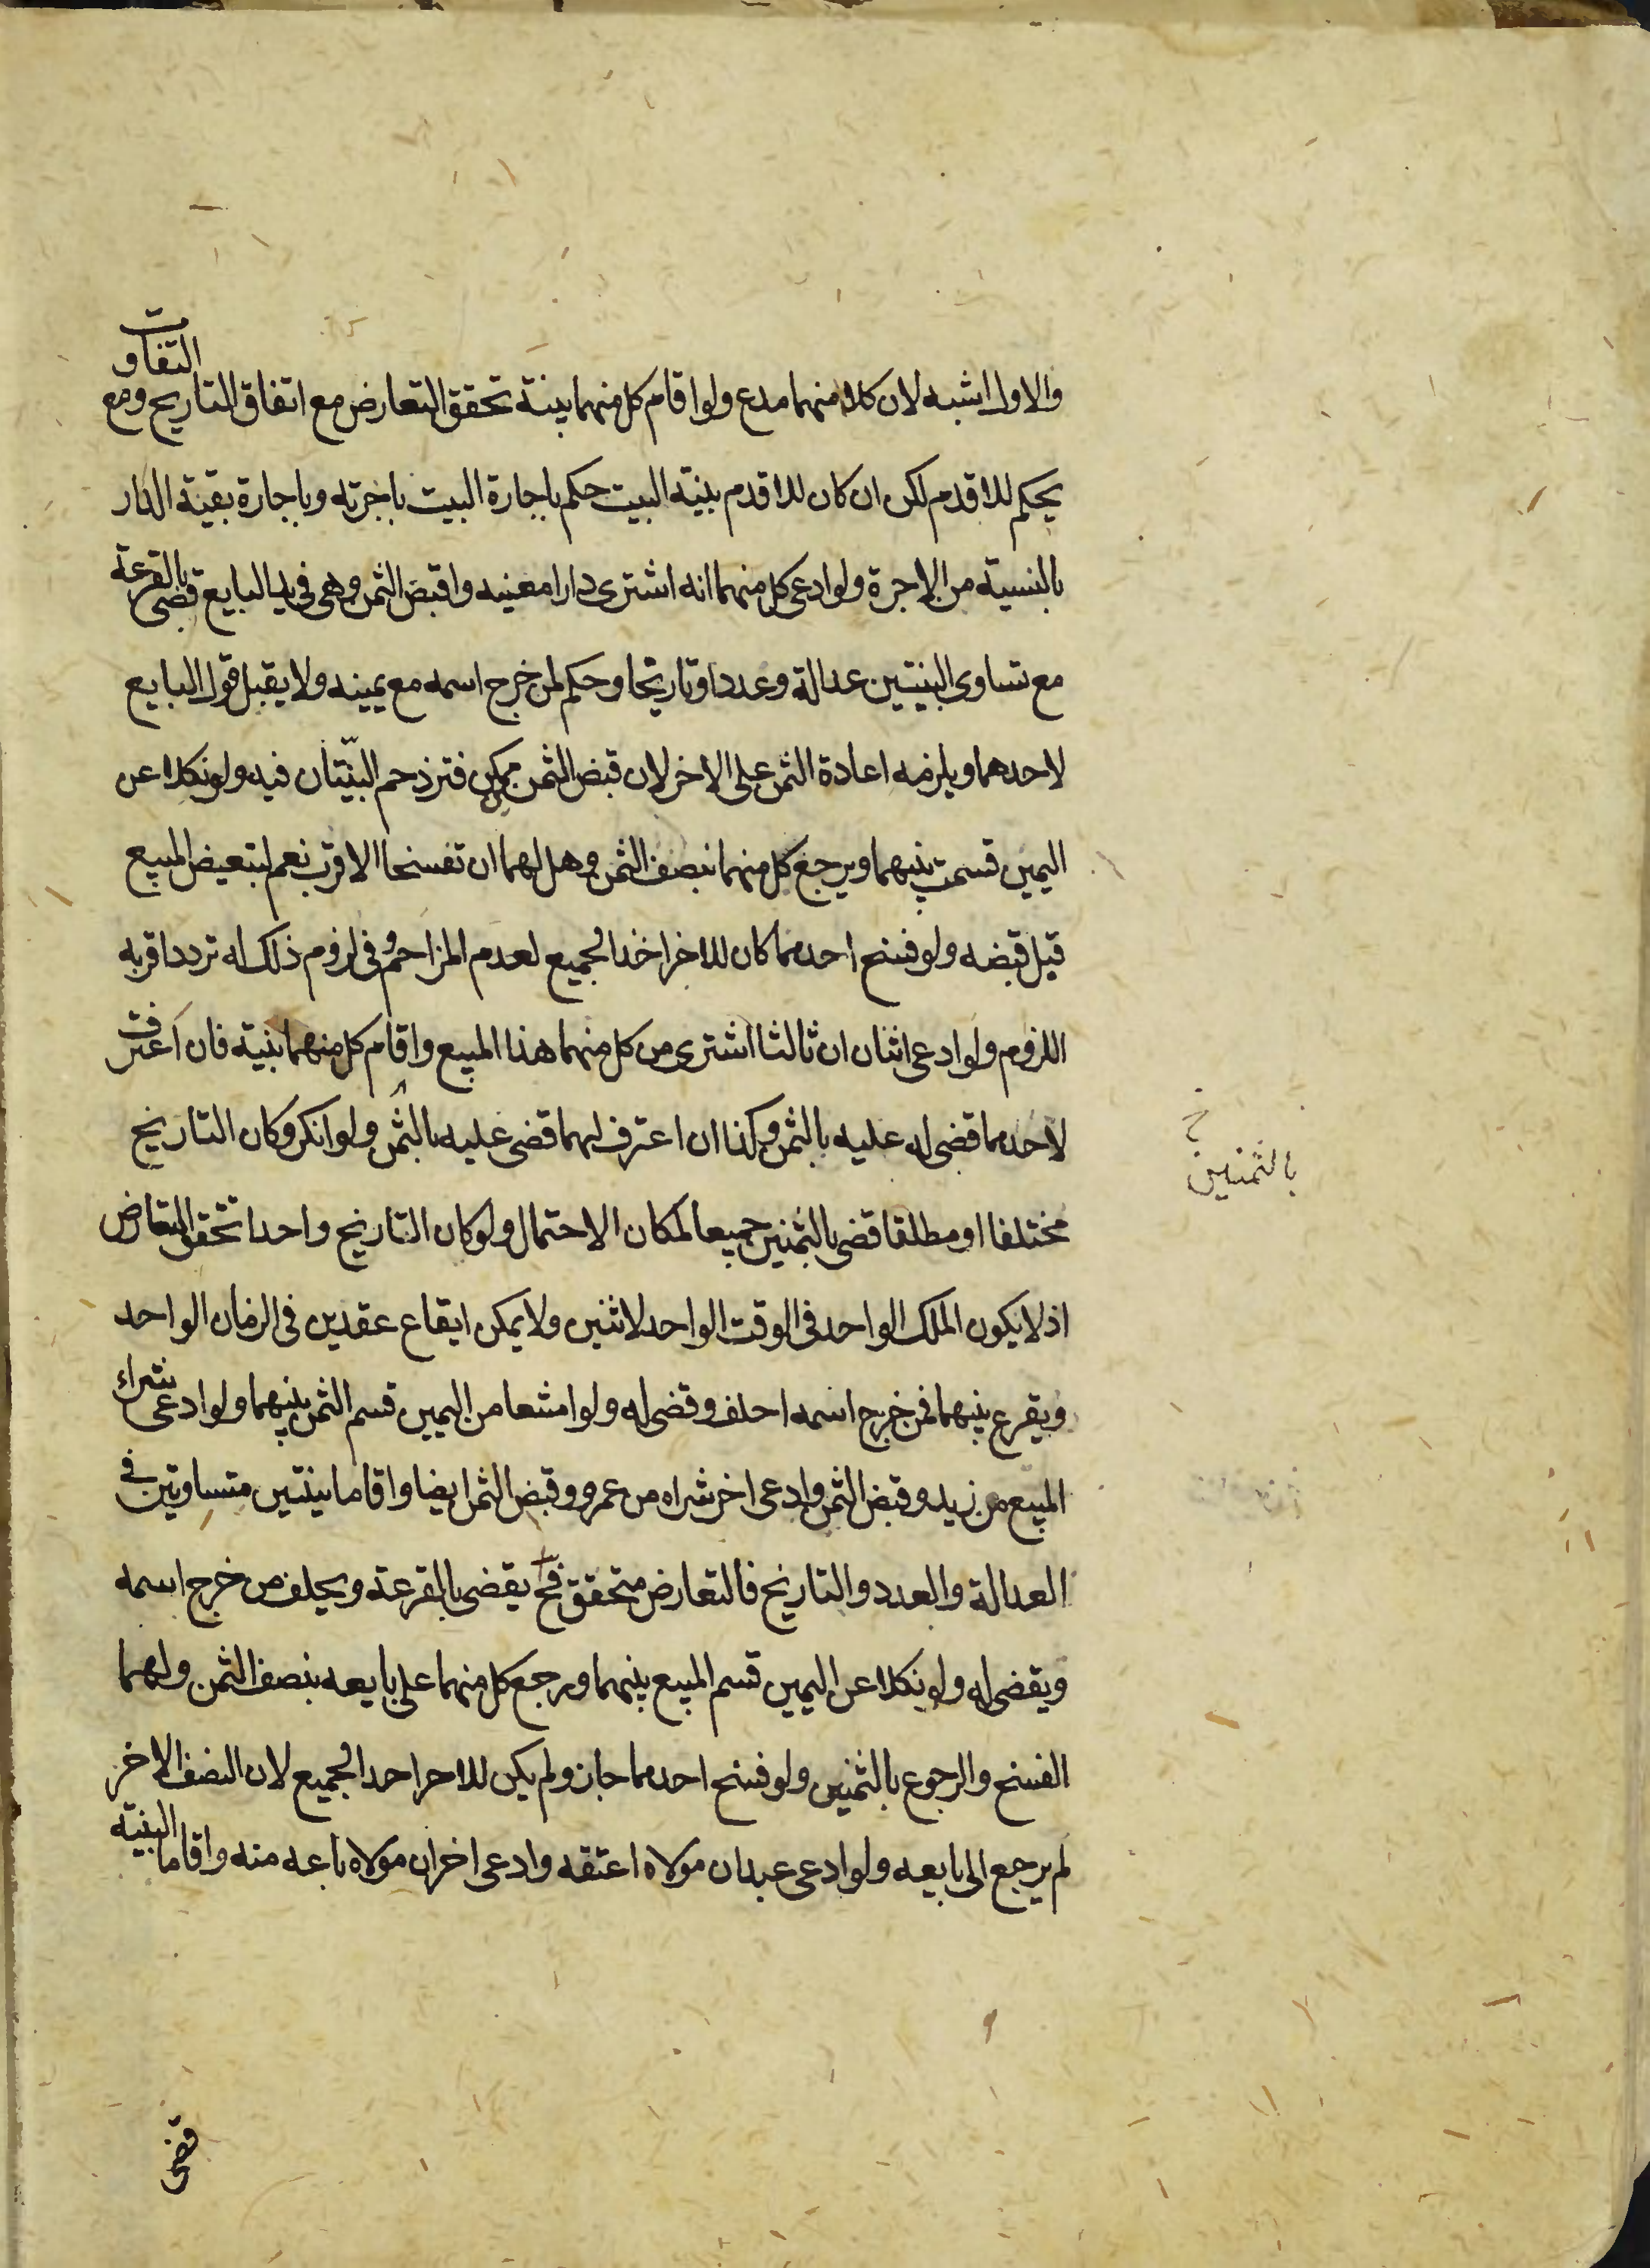 والاول اشبه لان كلا منهما مدع ولو اقام كل منهما بينة تحقق التعارض مع اتفاق التاريخ ومع التفاوت
يحكم للاقدم لكن ان كان للاقدم بينة البيت حكم باجارة البيت باجرته وباجارة بقية الدار
بالنسبة من الاجرة ولو ادعى كل منهما انه اشترى دارا معينه واقبض الثمن وهى فى يد البايع قضى بالقرعة
مع تساوى البينتين عدالة وعددا وتاريخا وحكم لمن خرج اسمه مع يمينه ولا يقبل قول البايع
لاحدهما ويلزمه اعادة الثمن على الاخر لان قبض الثمن ممكن فتزدحم البيّنتان فيه ولو نكلا عن
اليمين قسمت بينهما ويرجع كل منهما بنصف الثمن وهل لهما ان تفسخا الاقرب نعم لتبعيض المبيع
قبل قبضه ولو فسخ احدهما كان للاخر اخذ الجميع لعدم المزاحم وفى لزوم ذلك له تردد اقربه
اللزوم ولو ادعى اثنان ان ثالثا اشترى من كل منهما هذا المبيع واقام كل منهما بينة فان اعترف
لاحدهما قضى له عليه بالثمن وكذا ان اعترف لهما قضى عليه بالثمن ولو انكر وكان التاريخ
خ بالثمنين
مختلفا او مطلقا قضى بالثمنين جميعا لمكان الاحتمال ولو كان التاريخ واحدا تحقق التعارض
اذ لا يكون الملك الواحد فى الوقت الواحد لاثنين ولا يمكن ايقاع عقدين فى الزمان الواحد
ويقرع بينهما فمن خرج اسمه احلف وقضى له ولو امتنعا من اليمين قسم الثمن بينهما ولو ادعى شراء
المبيع من زيد وقبض الثمن وادعى اخر شراه من عمرو وقبض الثمن ايضا واقاما بينتين متساويتين فى
العدالة والعدد والتاريخ فالتعارض متحقق فح يقضى بالقرعة ويحلف من خرج اسمه
ويقضى له ولو نكلا عن اليمين قسم المبيع بينهما ورجع كل منهما على بايعه بنصف الثمن ولهما
الفسخ والرجوع بالثمنين ولو فسخ احدهما جاز ولم يكن للاخر اخذ الجميع لان النصف الاخر
لم يرجع الى بايعه ولو ادعى عبد ان مولاه اعتقه وادعى اخر ان مولاه باعه منه واقاما البينة
قضى